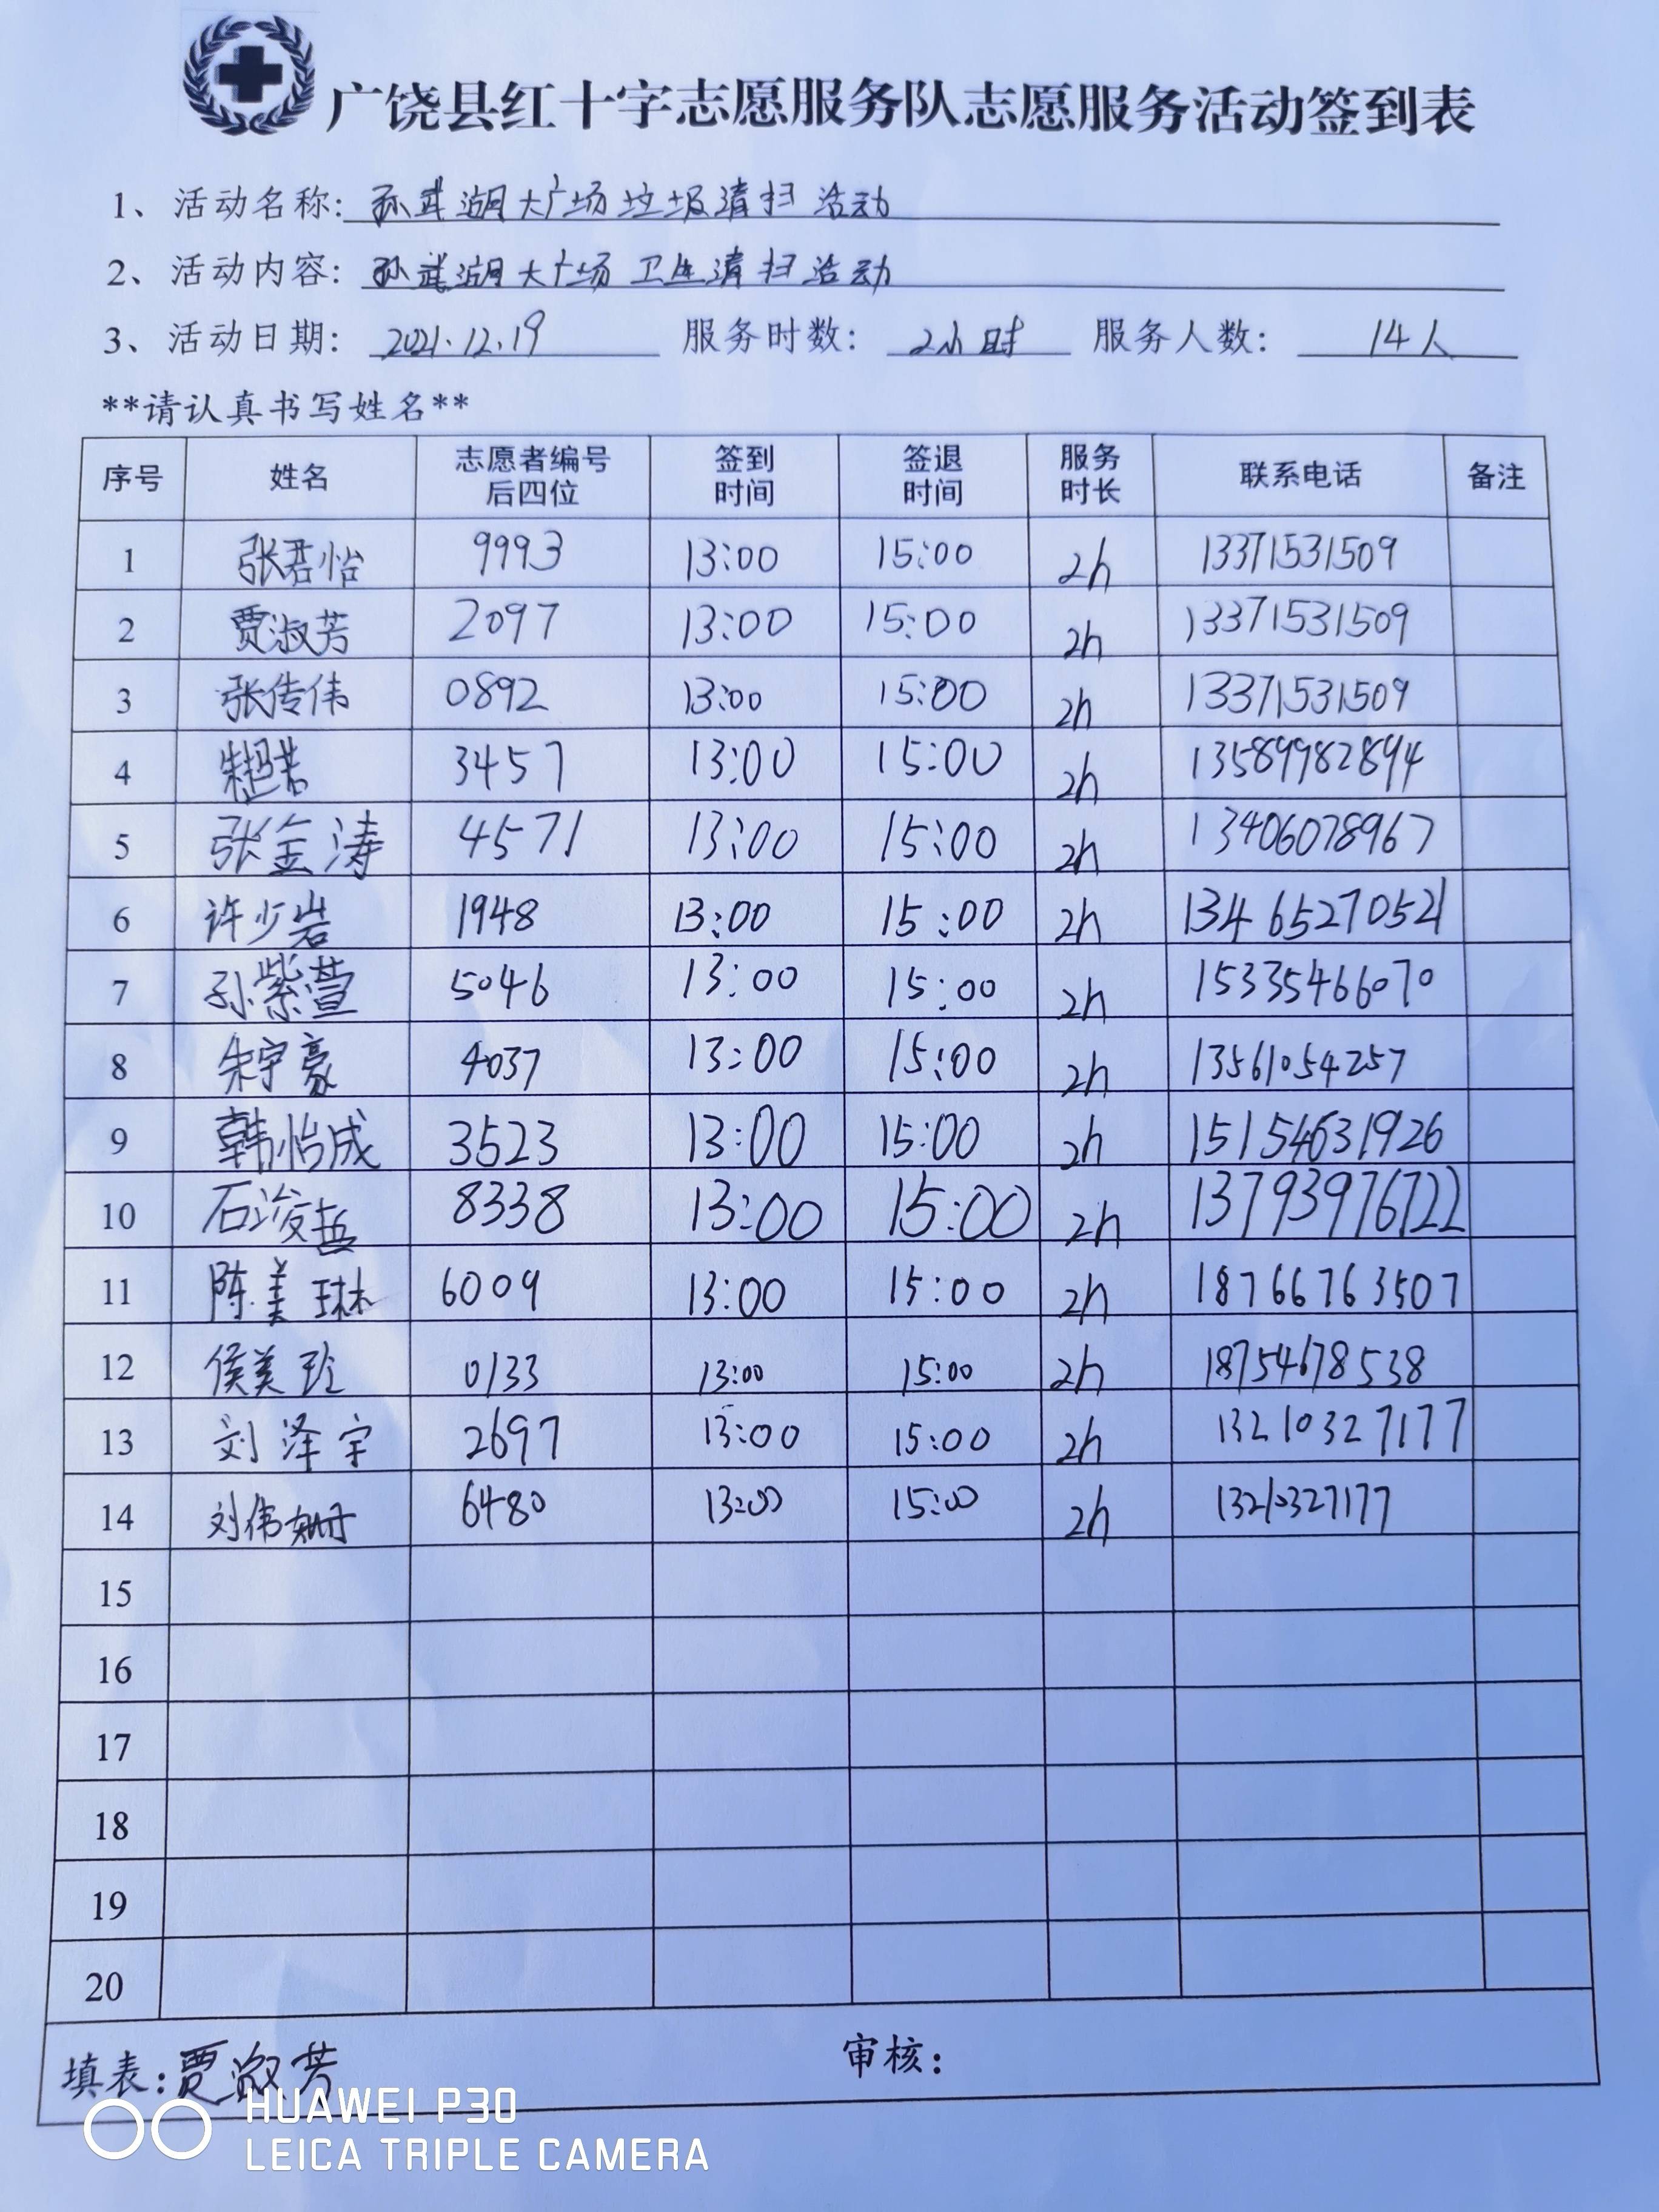 广饶县红十字志愿服务队志愿服务活动签到表
1、活动名称: 孙武湖大广场垃圾清扫活动
2、活动内容: 孙武湖大广场卫生清扫活动
3、活动日期: 2021.12.19 服务时数: 2小时 服务人数: 14人
**请认真书写姓名**
序号 姓名 志愿者编号后四位 签到时间 签退时间 服务时长 联系电话 备注
1 张君怡 9993 13:00 15:00 2h 13371531509
2 贾淑芳 2097 13:00 15:00 2h 13371531509
3 张传伟 0892 13:00 15:00 2h 13371531509
4 3457 13:00 15:00 2h 13589982894
5 张金涛 4571 13:00 15:00 2h 13406078967
6 许少岩 1948 13:00 15:00 2h 13465270521
7 孙紫萱 5046 13:00 15:00 2h 15335466070
8 朱宇豪 4037 13:00 15:00 2h 13561054257
9 韩怡成 3523 13:00 15:00 2h 15154631926
10 石浚哲 8338 13:00 15:00 2h 13793976722
11 陈美琳 6009 13:00 15:00 2h 18766763507
12 侯美玲 0133 13:00 15:00 2h 18754678538
13 刘泽宇 2697 13:00 15:00 2h 13210327177
14 刘伟姗 6480 13:00 15:00 2h 13210327177
15
16
17
18
19
20
填表: 贾淑芳 审核:
HUAWEI P30
LEICA TRIPLE CAMERA